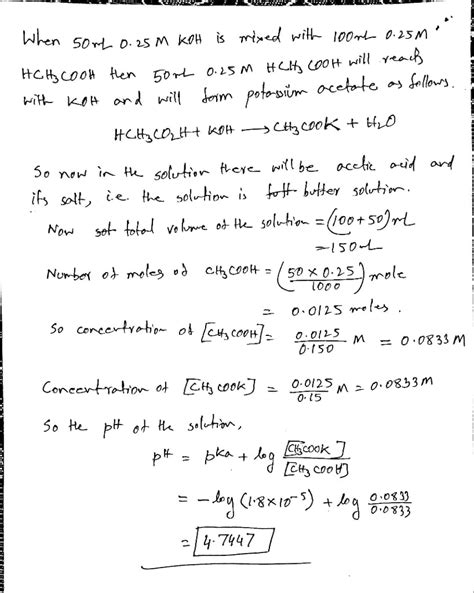 When 50mL 0.25M KOH is mixed with 100mL 0.25M
HCH3COOH then 50mL 0.25M HCH3COOH will reach
with KOH and will form potassium acetate as follows.
HCH3CO2H + KOH → CH3COOK + H2O
So now in the solution there will be acetic acid and
its salt, i.e. the solution is buffer solution.
Now total volume of the solution = (100+50)mL
=150mL
Number of moles of CH3COOH = (50 × 0.25 / 1000) mole
= 0.0125 moles.
So concentration of [CH3COOH] = 0.0125 / 0.150 M = 0.0833M
Concentration of [CH3COOK] = 0.0125 / 0.15 M = 0.0833M
So the pH of the solution,
pH = pKa + log [CH3COOK] / [CH3COOH]
= -log (1.8×10^-5) + log 0.0833 / 0.0833
= 4.7447